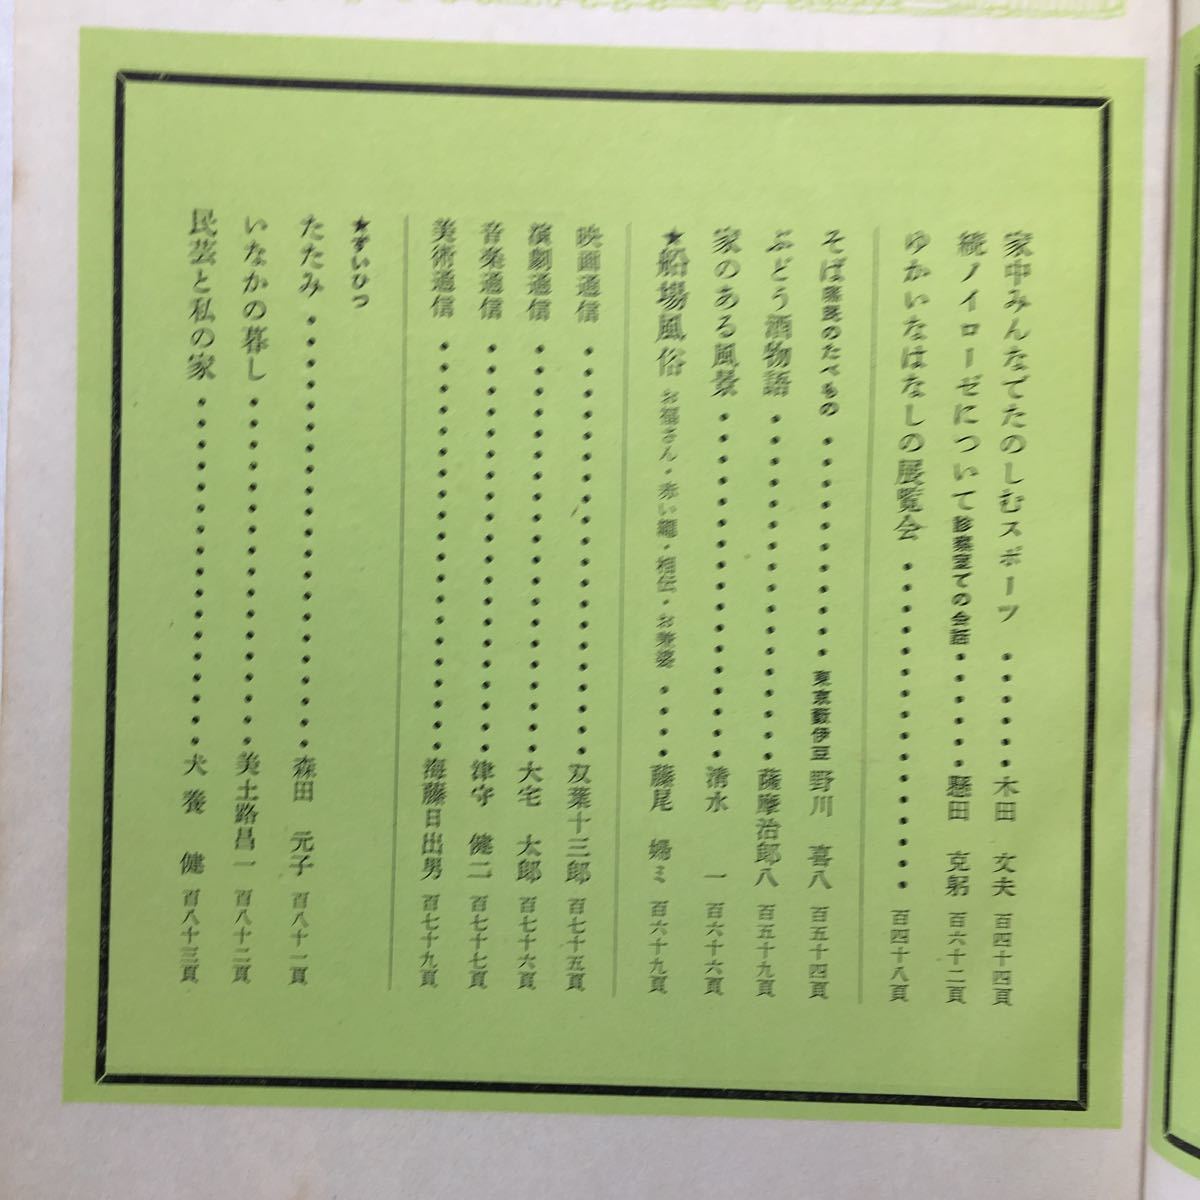 家中みんなでたのしむスポーツ・・・・・木田　文夫　百四十四頁
続ノイローゼについて 診察室での会話・・・・・懸田　克躬　百六十二頁
ゆかいなはなしの展覧会・・・・・・・・・・・・・・・百四十八頁
そば 庶民のたべもの・・・・・・・・・・東京藪伊豆　野川　喜八　百五十四頁
ぶどう酒物語・・・・・・・・・・・・・・・薩摩治郎八　百五十九頁
家のある風景・・・・・・・・・・・・・・・清水　一　百六十六頁
★船場風俗 お福さん・赤い鼻・相伝・お兼婆・・・・藤尾　　ミ　百六十九頁
映画通信・・・・・・・・・・・・・・・・・・双葉十三郎　百七十五頁
演劇通信・・・・・・・・・・・・・・・・・・大宅　太郎　百七十六頁
音楽通信・・・・・・・・・・・・・・・・・・津守　健二　百七十七頁
美術通信・・・・・・・・・・・・・・・・・・海藤日出男　百七十九頁
★ずいひつ
たたみ・・・・・・・・・・・・・・・・・・・森田　元子　百八十一頁
いなかの暮し・・・・・・・・・・・・・・・美土路昌一　百八十二頁
民芸と私の家・・・・・・・・・・・・・・・犬養　健　百八十三頁